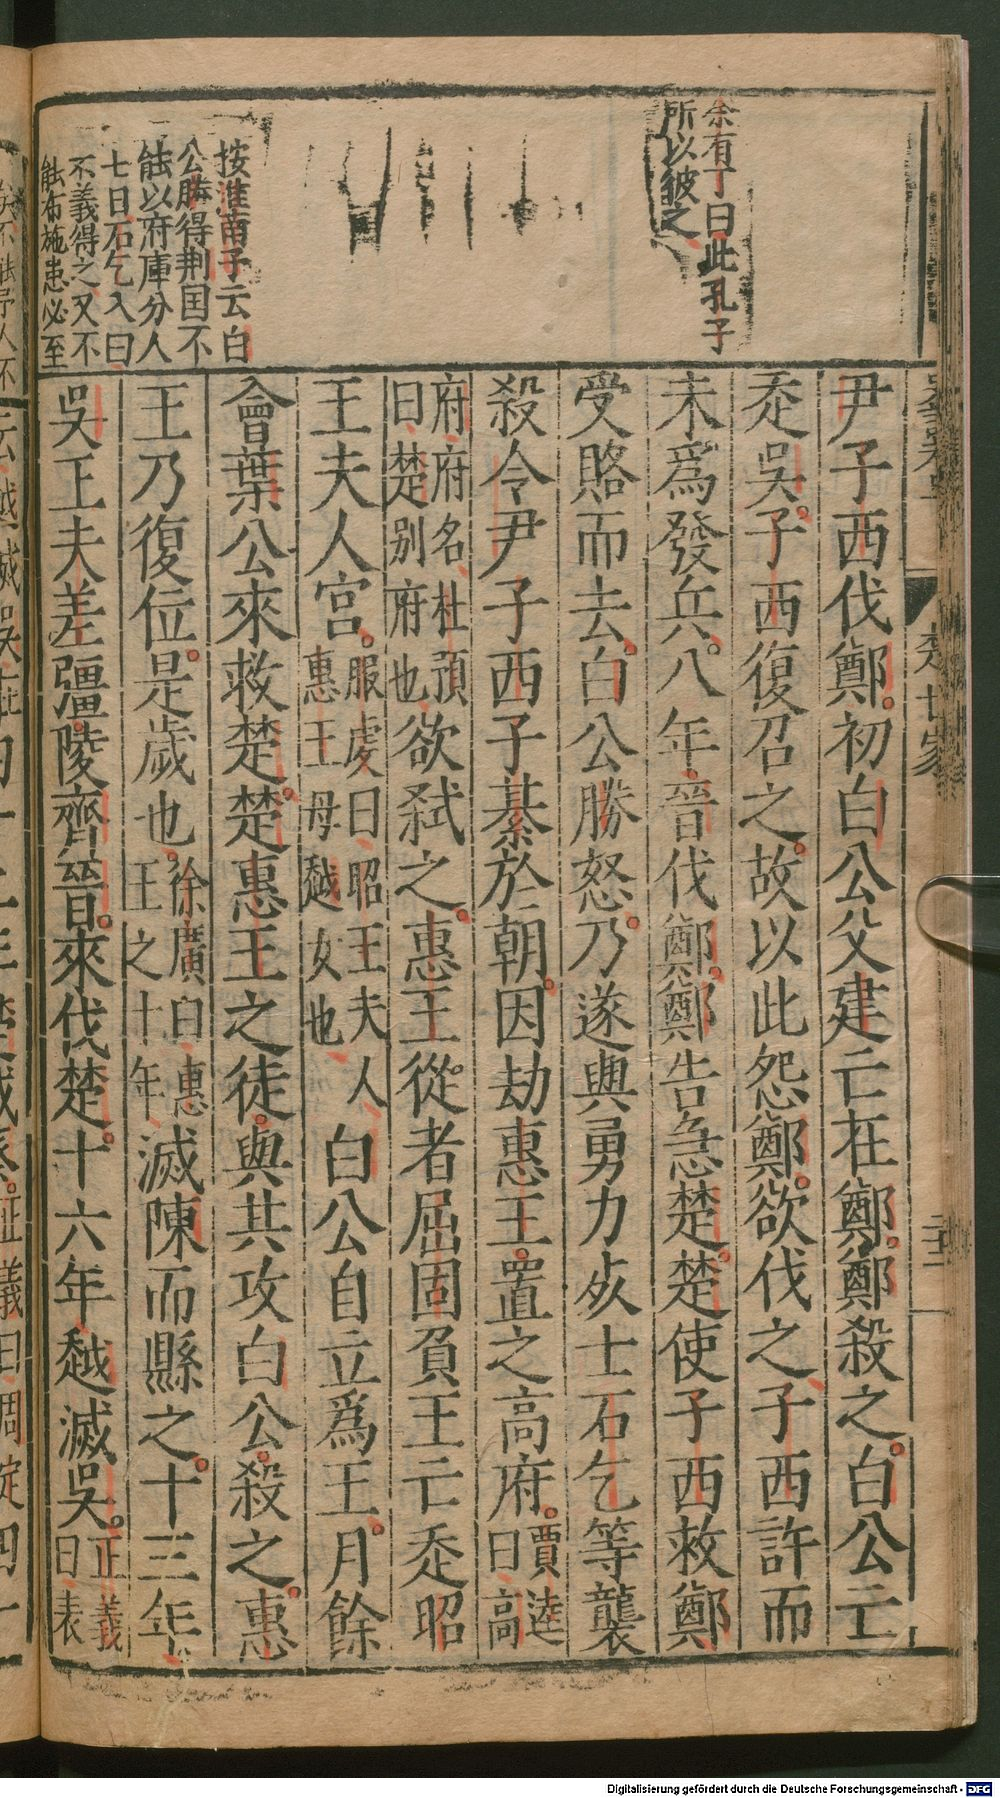 余有丁曰此孔子
所以彼之
按淮南子云白
公勝得荆囯不
能以府庫分人
七日石乞入曰
不義得之又不
能布施患必至
尹子西伐鄭初白公父建亡在鄭鄭殺之白公亡
走吳子西復召之故以此怨鄭欲伐之子西許而
未爲發兵八年晉伐鄭鄭告急楚楚使子西救鄭
受賂而去白公勝怒乃遂與勇力死士石乞等襲
殺令尹子西子綦於朝因劫惠王置之高府賈逵曰高
府府名杜預曰楚别府也欲弑之惠王從者屈固負王亡走昭
王夫人宫服虔曰昭王夫人惠王母越女也白公自立爲王月餘
會葉公來救楚楚惠王之徒與共攻白公殺之惠
王乃復位是歲也徐廣曰惠王之十年滅陳而縣之十三年
吳王夫差彊陵齊晉來伐楚十六年越滅吳正義曰表
楚世家
Digitalisierung gefördert durch die Deutsche Forschungsgemeinschaft - DFG